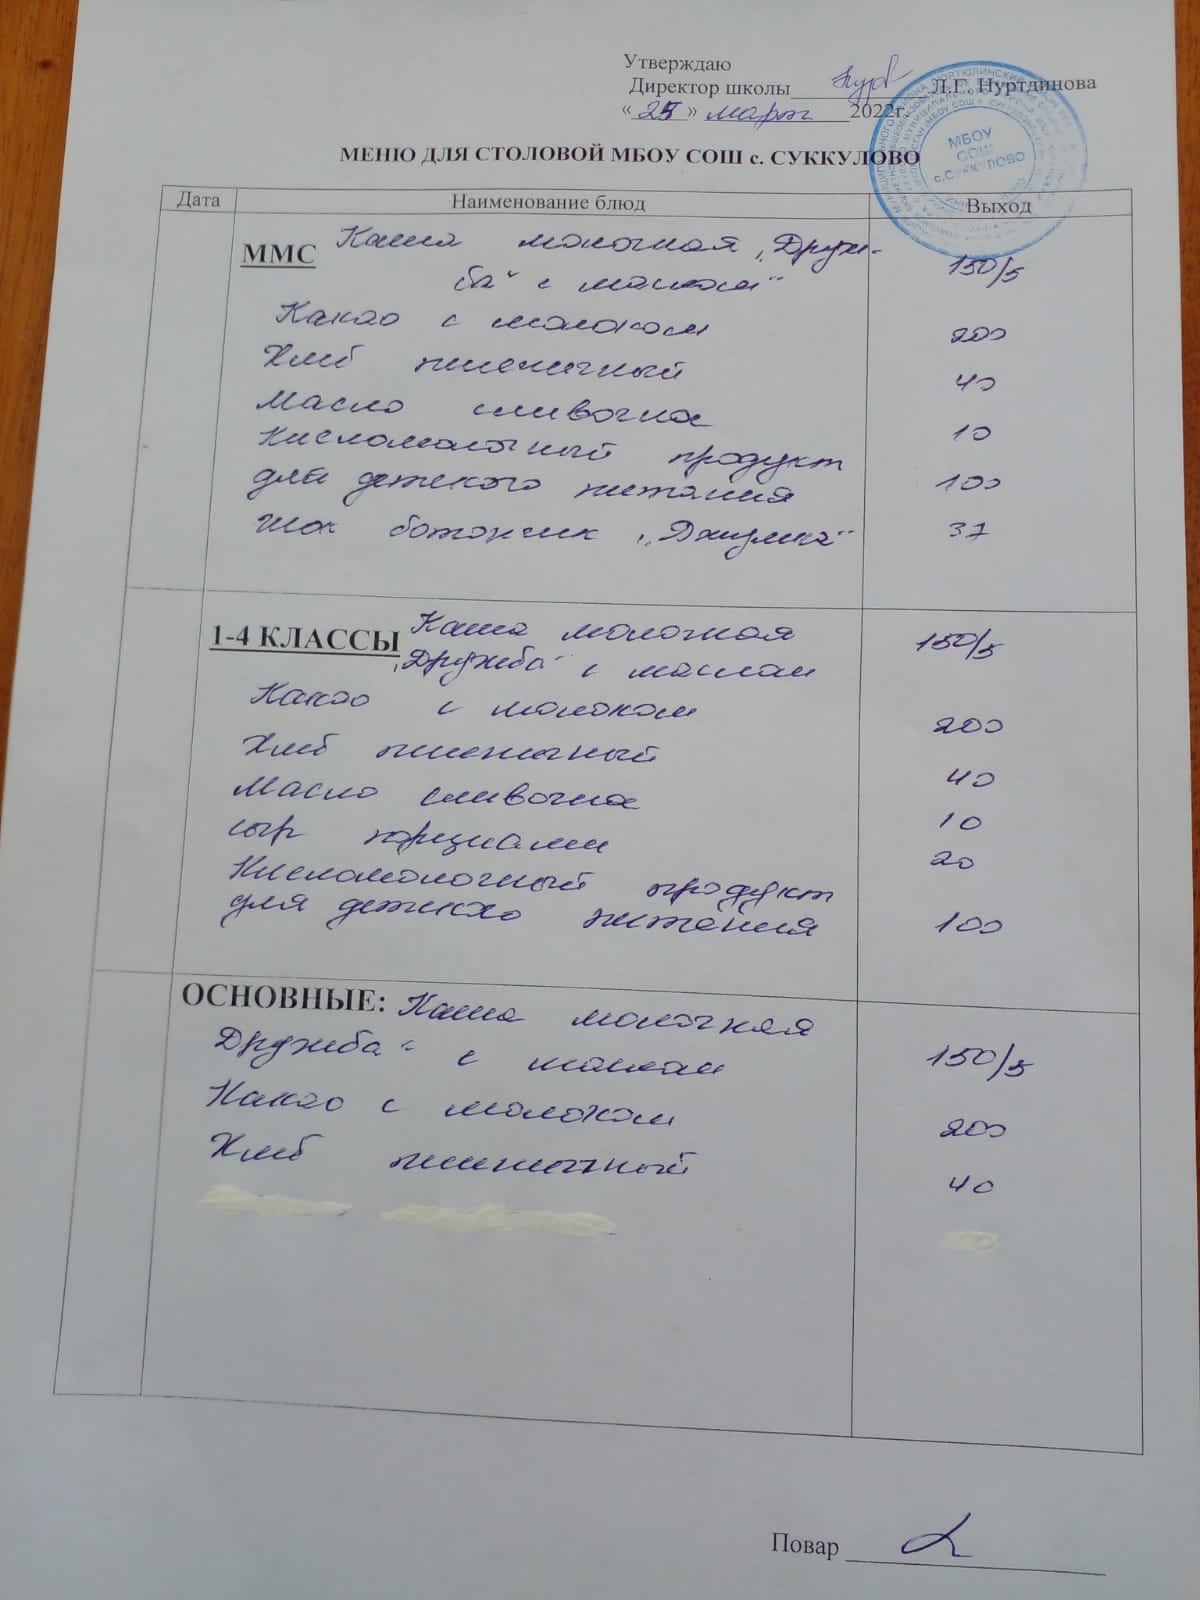 Утверждаю
Директор школы Л.Г. Нуртдинова
«25» март 2022г.
МБОУ
СОШ
с.СУККУЛОВО
МЕНЮ ДЛЯ СТОЛОВОЙ МБОУ СОШ с. СУККУЛОВО
Дата Наименование блюд Выход
ММС Каша молочная „Друж-
ба" с маслом" 150/5
Какао с молоком 200
Хлеб пшеничный 40
Масло сливочное 10
Кисломолочный продукт
для детского питания 100
шок батончик „Джумка" 37
1-4 КЛАССЫ Каша молочная 150/5
„Дружба" с маслом
Какао с молоком 200
Хлеб пшеничный 40
Масло сливочное 10
сыр порциями 20
Кисломолочный продукт
для детского питания 100
ОСНОВНЫЕ: Каша молочная
Дружба" с маслом 150/5
Какао с молоком 200
Хлеб пшеничный 40
Повар